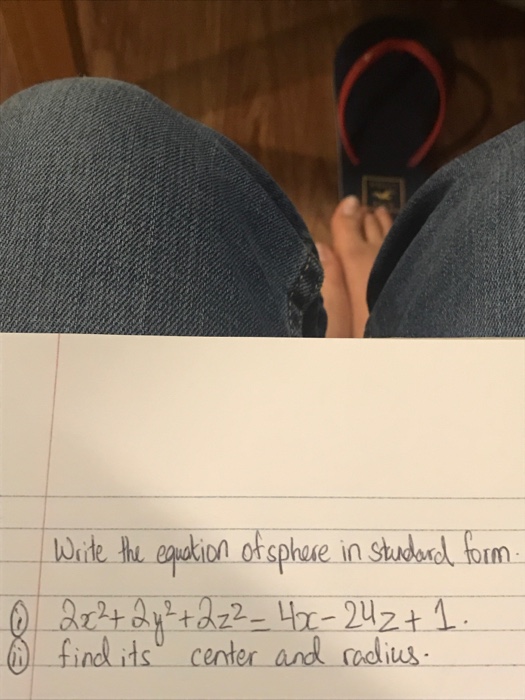 Write the equation of sphere in standard form.
(i) 2x²+2y²+2z² = 4x - 24z + 1.
(ii) find its center and radius.